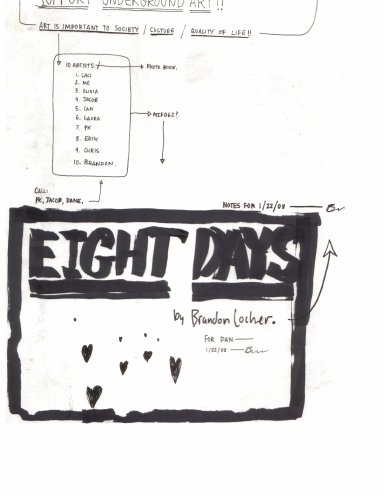 SUPPORT UNDERGROUND ART!!
ART IS IMPORTANT TO SOCIETY / CULTURE / QUALITY OF LIFE!!
10 ARTISTS
PHOTO BOOK.
1. LALI
2. ME
3. OLIVIA
4. JACOB
5. IAN
6. LAURA
7. PK
8. ERIK
9. CHRIS
10. BRANDON.
CALL:
PK, JACOB, DANE,
NOTES FOR 1/22/08
EIGHT DAYS
by Brandon Locher.
FOR DAN
1/22/08